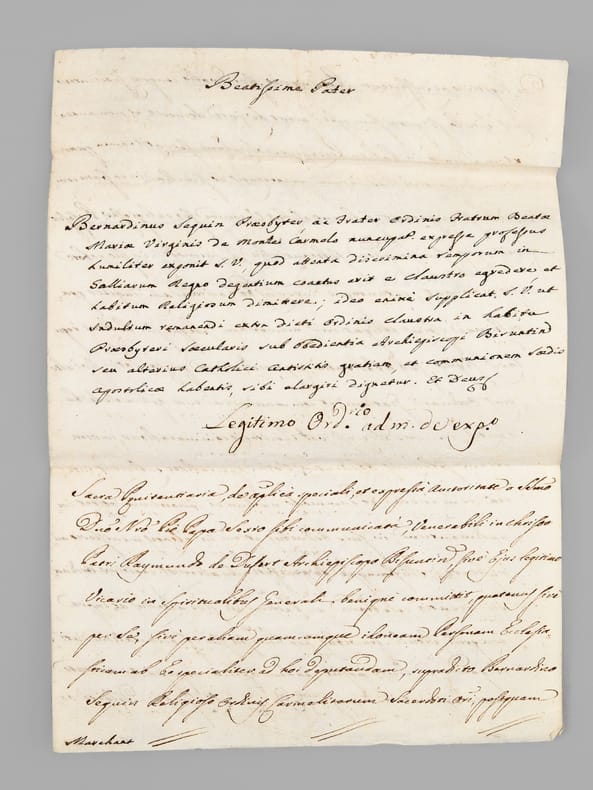 Beatissime Pater
Bernardinus Seguin Præsbyter ac Frater Ordinis Fratrum Beatæ
Mariæ Virginis de Monte Carmelo nuncupat. expresse professus
humiliter exponit S. V., quod attenta discrimina temporum in
Galliarum Regno degentium coactus erit e claustro egredere et
habitum Religiosum dimittere; ideo enixe supplicat S. V. ut
Indultum remanendi extra dicti ordinis claustra in habitu
Præsbyteri sæcularis sub obedientia Archiepiscopi Bisuntind
seu alterius Catholici Antistitis gratiam, et communionem Sædis
Apostolicæ habentis, sibi elargiri dignetur. Et Deus
Legitimo Ord.rio ad m. de exp.o
Sacra Pœnitentiaria de speciali, et expressa auctoritate a
Dño Nrõ Pio Papa Sexto sibi communicata, Venerabili in Christo
Patri Raymundo de Dufort Archiepiscopo Bisuntin, sive Ejus legitimo
Vicario in Spiritualibus Generali benigne committit, quatenus sive
per Se, sive per aliam quamcumque idoneam Personam Ecclesia-
sticam ab Eo specialiter ad hoc deputandam, supradicto Bernardino
Seguin Religioso Ordinis Carmelitarum Sacerdoti Ori, postquam
Marchant